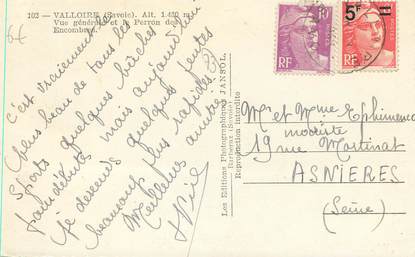 102 — VALLOIRE (Savoie). Alt. 1.430 m.
Vue générale et le Perron des
Encombres.
6€
c'est vraiment
beau de tous les
sports quelques bûches
au début mais aujourd'hui
je descends quelques pentes
beaucoup plus rapides.
Meilleures amitiés
Les Editions Photographiques JANSOL
Barberaz (Savoie)
Reproduction interdite
RF
5F
RF
Mr et Mme
modiste
19 rue Martinat
ASNIERES
(Seine)